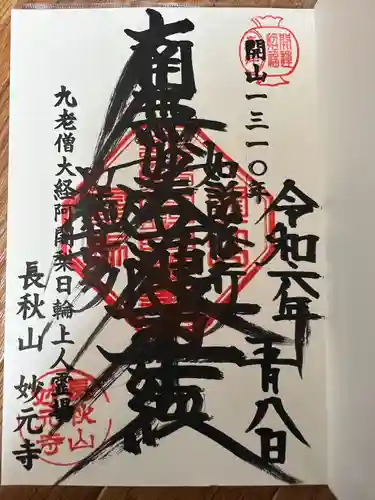 開山一三一〇年
令和六年五月八日
如説修行
南無妙法蓮華経
九老僧大経阿闍梨日輪上人霊場
長秋山 妙元寺
長秋山
妙元寺